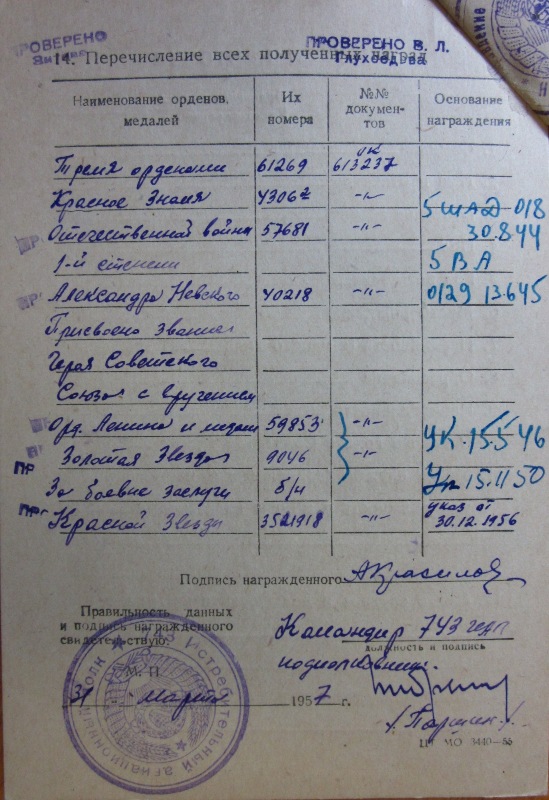 ПРОВЕРЕНО
ПРОВЕРЕНО В. Л.
Глухоедова
14. Перечисление всех полученных наград
Наименование орденов, медалей
Их номера
№№ документов
Основание награждения
Тремя орденами 61269 УК 613237
Красное Знамя 43062 -〃- 5 ШАД 018
Отечественной войны 57681 -〃- 30.8 44
1-й степени 5 ВА
Александра Невского 40218 -〃- 0129 13.6 45
Присвоено звание
Героя Советского
Союза с вручением
Орд. Ленина и медали 59853 -〃- УК 15.5 46
Золотая Звезда 9046 -〃-
За боевые заслуги б/н 15.11 50
Красной Звезды 3521918 -〃- указ от 30.12.1956
Подпись награжденного
Правильность данных
и подпись награжденного
свидетельствую:
Командир 743
должность и подпись
подполковник
М. П.
31 марта 1957 г.
/Паршин/
ЦТ МО 3440—55
Истребительный авиационный полк